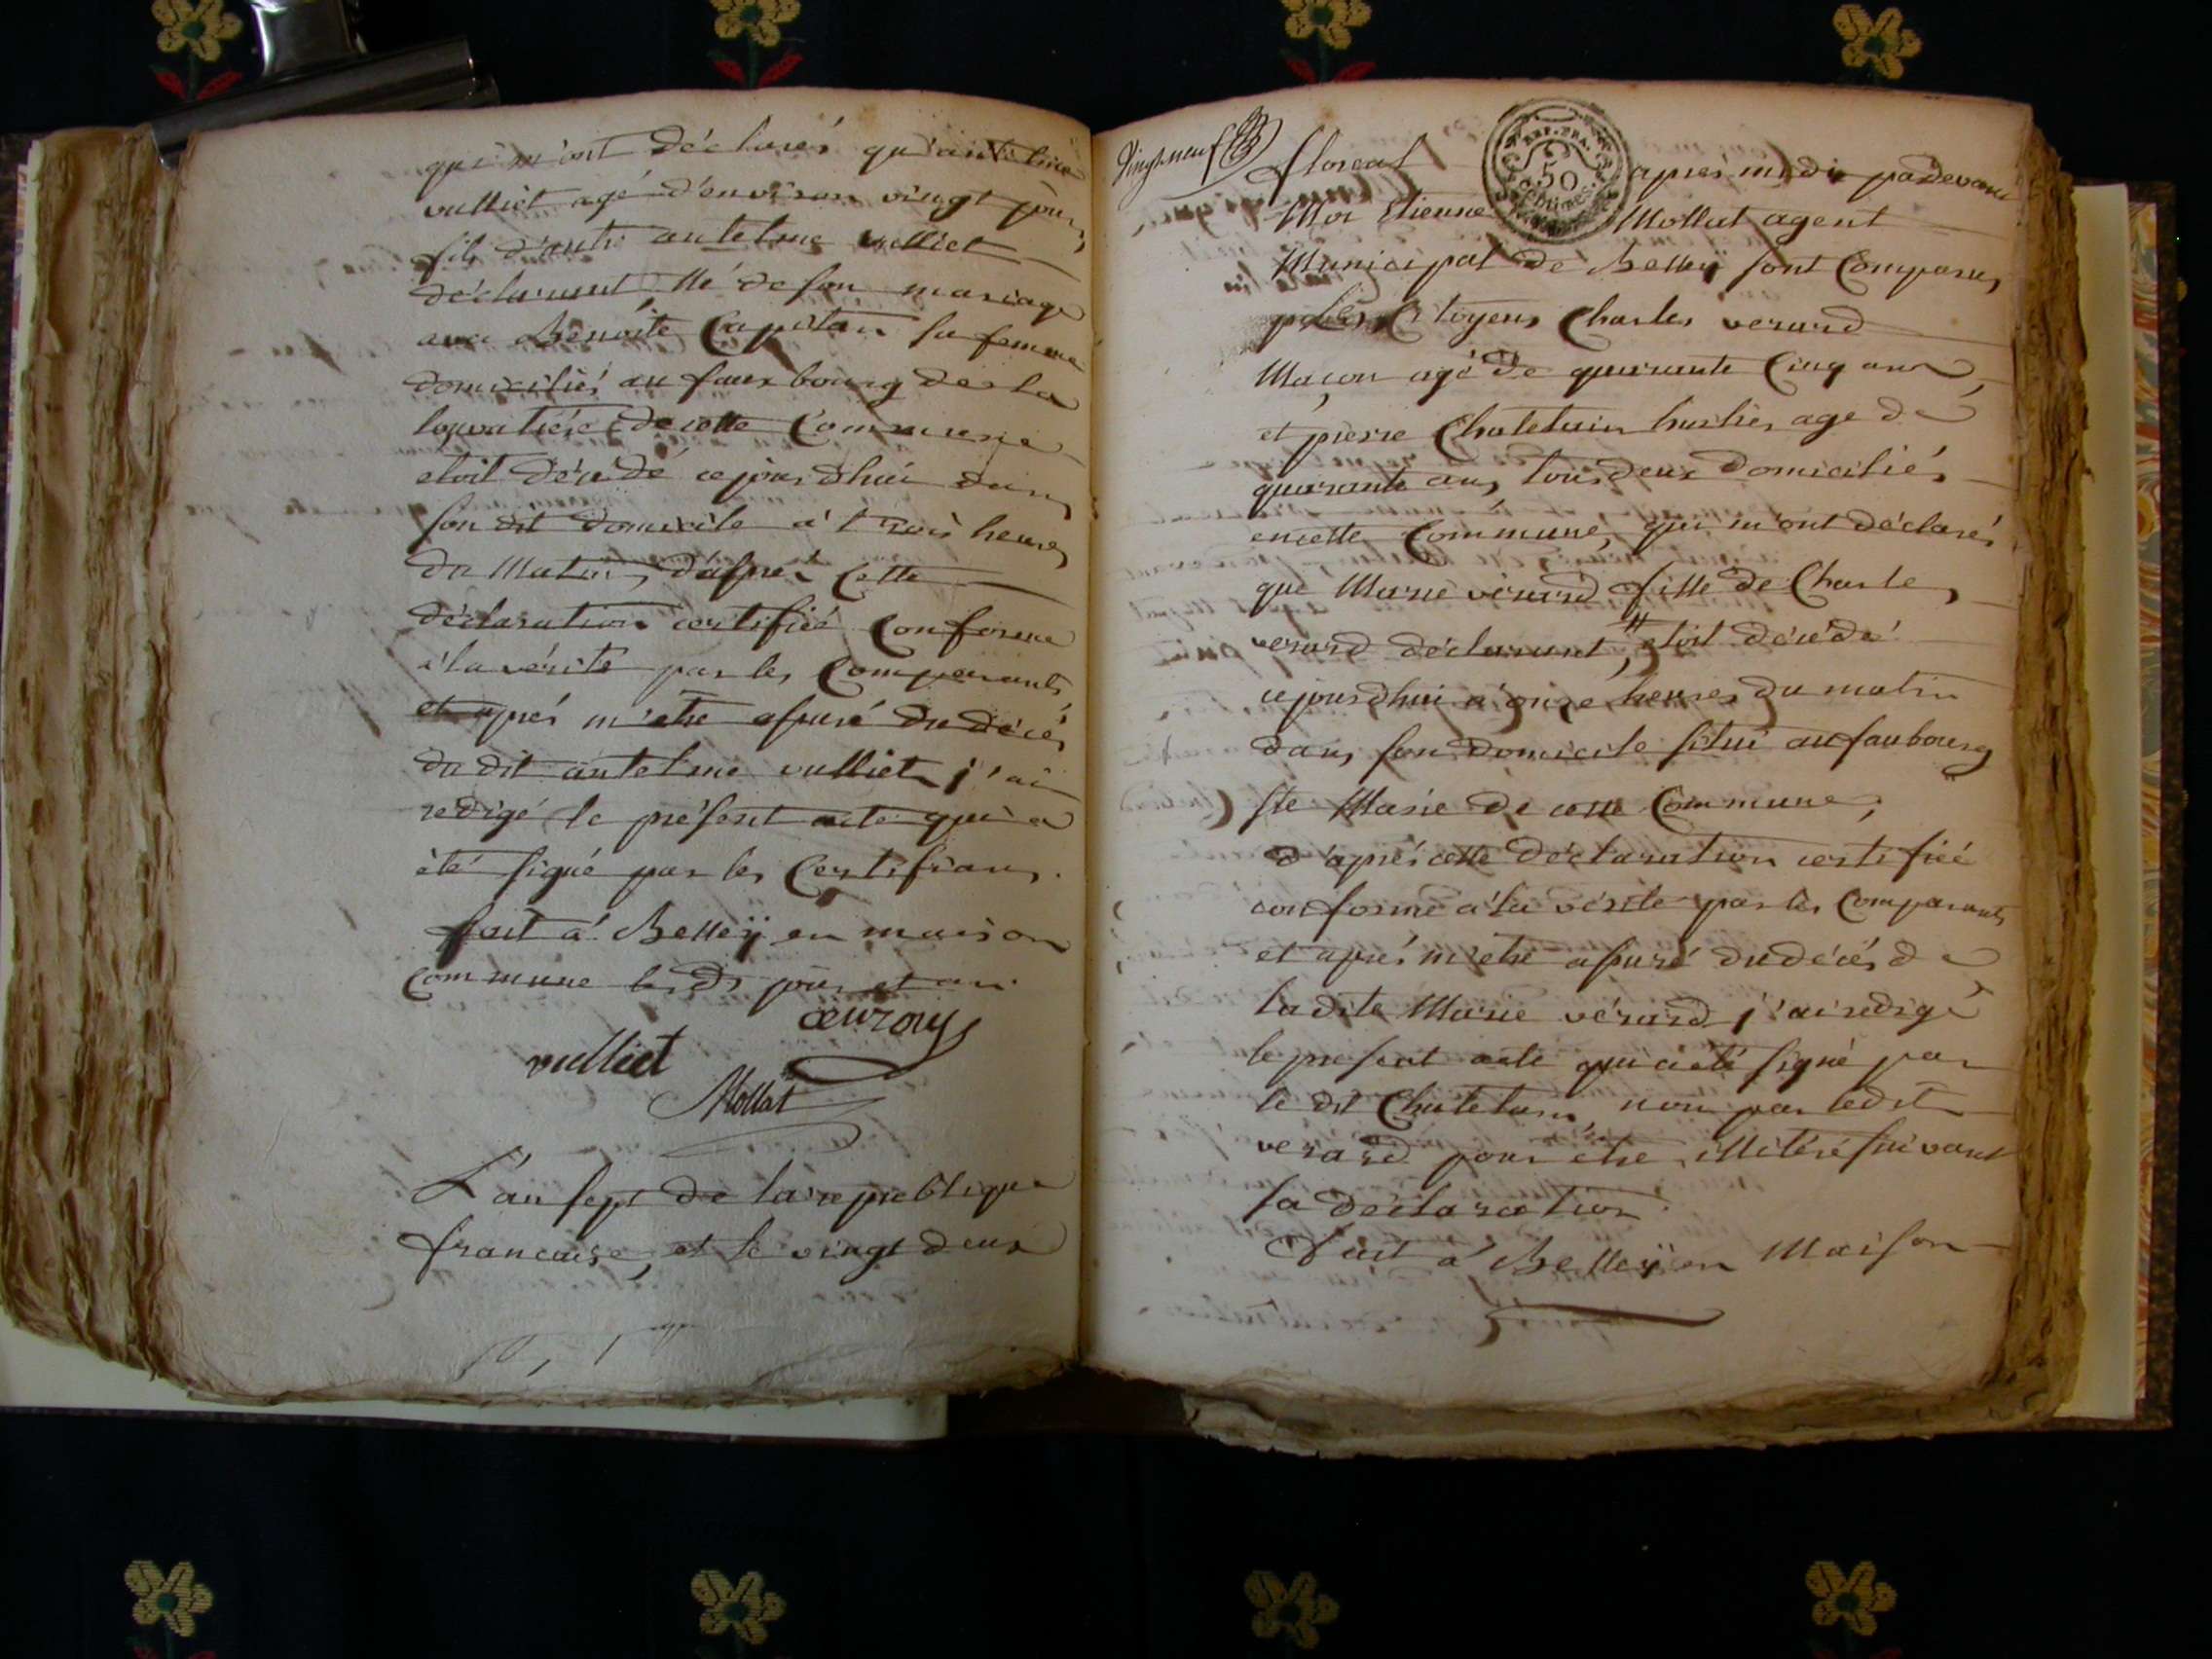 qui m'ont déclarés qu'antelme
vulliet agé d'environ vingt jours
fils d'autre antelme vulliet
déclarant né de son mariage
avec Benoite Capitan sa femme
domiciliés au faux bourg de la
louvatiére de cette Commune
etoit décédé ce jourd'hui dans
son dit domicile à trois heures
du Matin, d'aprés Cette
déclaration certifiée Conforme
à la vérité par les Comparants
et aprés m'etre assuré du décés
du dit antelme vulliet j'ai
redigé le présent acte qui a
été signé par les Certifians.
fait à Belleÿ en maison
Commune les ds jour et an.
vulliet
Mollat
L'an sept de la republique
francaise, et le vingt deux
Vingt neuf
floreal aprés midi pardevant
REP. FRA.
50
Centimes
Moi Etienne Mollat agent
Municipal de Belleÿ sont Comparus
les Citoyens Charles verard
Maçon agé de quarante Cinq ans,
et pierre Chatelain age de
quarante ans tous deux domiciliés
en cette Commune, qui m'ont déclarés
que Marie vérard fille de Charles
verard déclarant, etoit décédé
ce jourd'hui à onze heures du matin
dans son domicile situé au faubourg
Ste Marie de cette Commune,
d'aprés cette déclaration certifiée
conforme à la vérité par les Comparants
et aprés m'etre assuré du décés de
la dite Marie vérard j'ai redigé
le present acte qui a eté signé par
le dit Chatelain, non par ledit
verard pour etre illitéré suivant
sa déclaration.
fait à Belleÿ en Maison